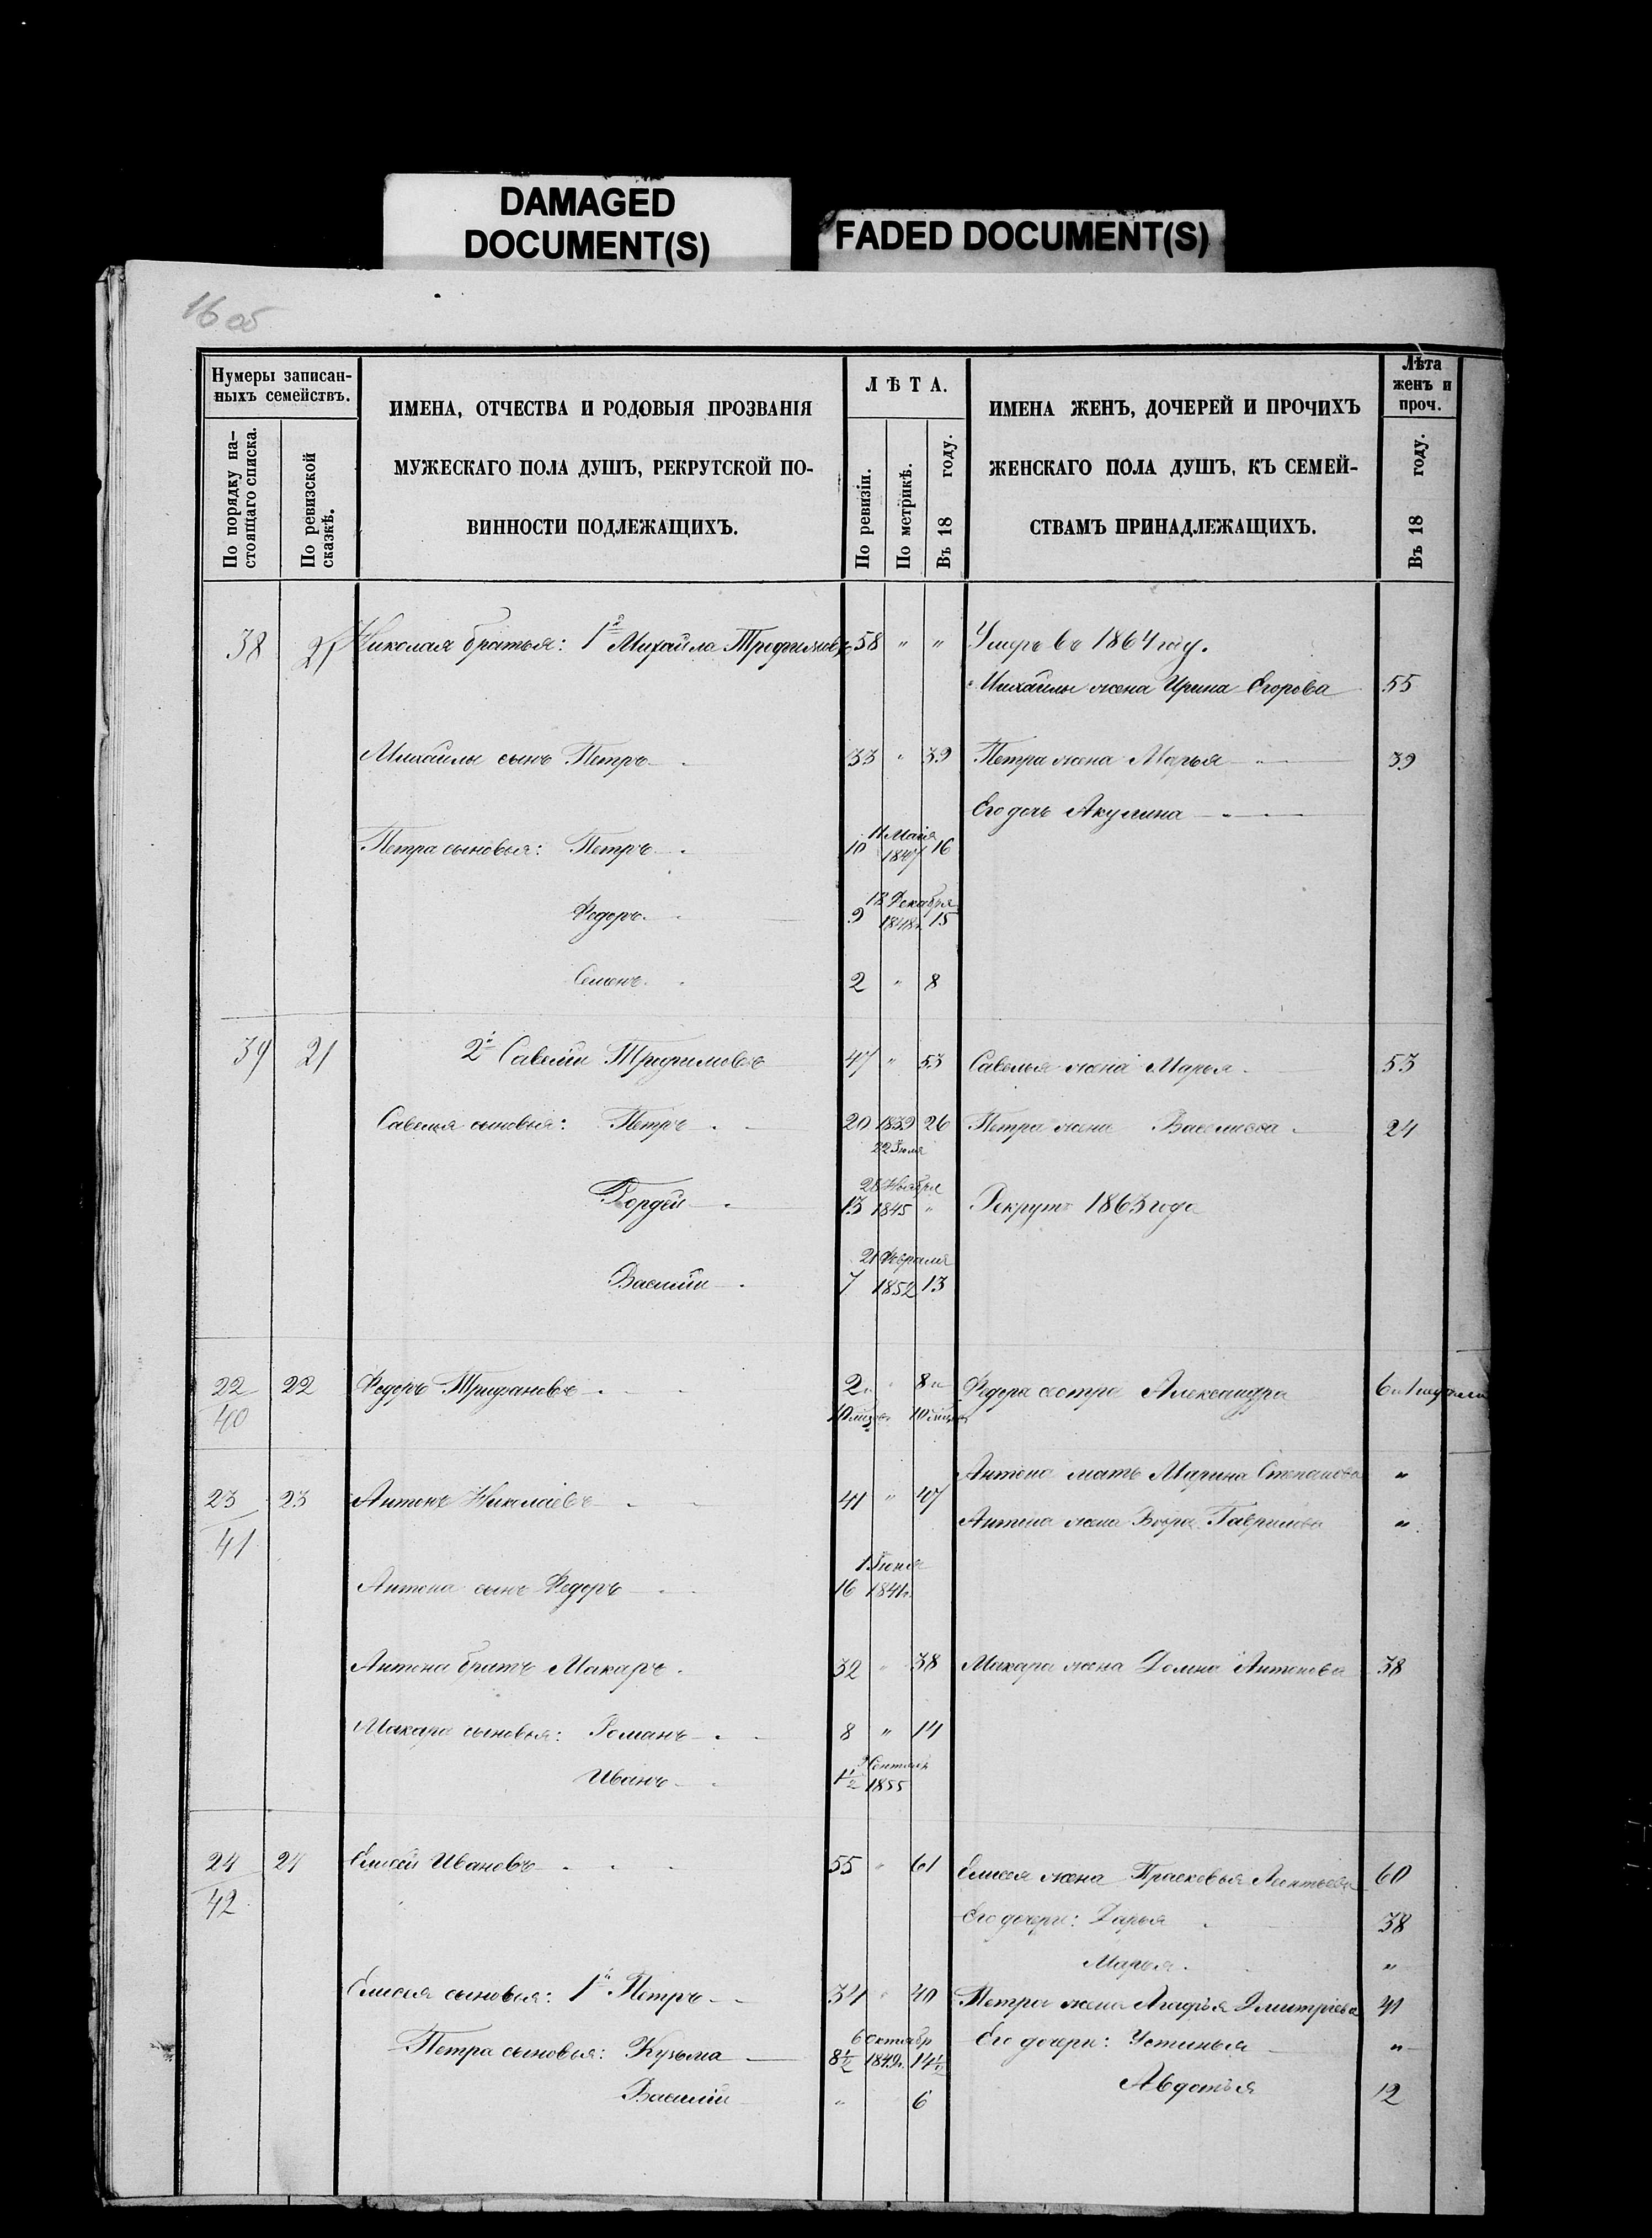 DAMAGED
DOCUMENT(S)
FADED DOCUMENT(S)
16 об
Нумеры записан-
ныхъ семействъ.
По порядку на-
стоящаго списка.
По ревизской
сказкѣ.
ИМЕНА, ОТЧЕСТВА И РОДОВЫЯ ПРОЗВАНІЯ
МУЖЕСКАГО ПОЛА ДУШЪ, РЕКРУТСКОЙ ПО-
ВИННОСТИ ПОДЛЕЖАЩИХЪ.
ЛѢТА.
По ревизіи.
По метрикѣ.
Въ 18 году.
ИМЕНА ЖЕНЪ, ДОЧЕРЕЙ И ПРОЧИХЪ
ЖЕНСКАГО ПОЛА ДУШЪ, КЪ СЕМЕЙ-
СТВАМЪ ПРИНАДЛЕЖАЩИХЪ.
Лѣта
женъ и
проч.
Въ 18 году.
38 21 Николая братья: 1й Михайла Трофимовъ 58 " " Умеръ въ 1864 году.
Михайлы жена Ирина Егорова 55
Михайлы сынъ Петръ 33 " 39 Петра жена Марья " 39
Его дочь Акулина "
11 Маія
Петра сыновья: Петръ 10 1847 16
12 Декабря
Федоръ 9 1848г. 15
Семенъ 2 " 8
39 21 2й Савелій Трофимовъ 47 " 53 Савелья жена Марья 53
Савелья сыновья: Петръ 20 1839 26 Петра жена Василиса 24
22 Іюля
28 Ноября
Гордей 13 1845 " Рекрутъ 1863 года
21 Февраля
Василій 7 1852 13
22 22 Федоръ Трифановъ 2 " 8 Федора сестра Александра
40 10 10
Антона мать Марина Степанова "
23 23 Антонъ Николаевъ 41 " 47
41 Антона жена Вѣра Гаврилова "
1 Іюня
Антона сынъ Федоръ 16 1841г.
Антона братъ Макаръ 32 " 38 Макара жена Домна Антонова 38
Макара сыновья: Романъ 8 " 14
Иванъ 1½ 1855
24 24 Елисей Ивановъ 55 " 61 Елисея жена Прасковья Леонтьева 60
42 Его дочери: Дарья 38
Марья "
Елисея сыновья: 1й Петръ 34 " 40 Петра жена Агафья Дмитріева 41
6 Октябр Его дочери: Устинья "
Петра сыновья: Кузьма 8½ 1849г. 14½
Авдотья 12
Василій " 6